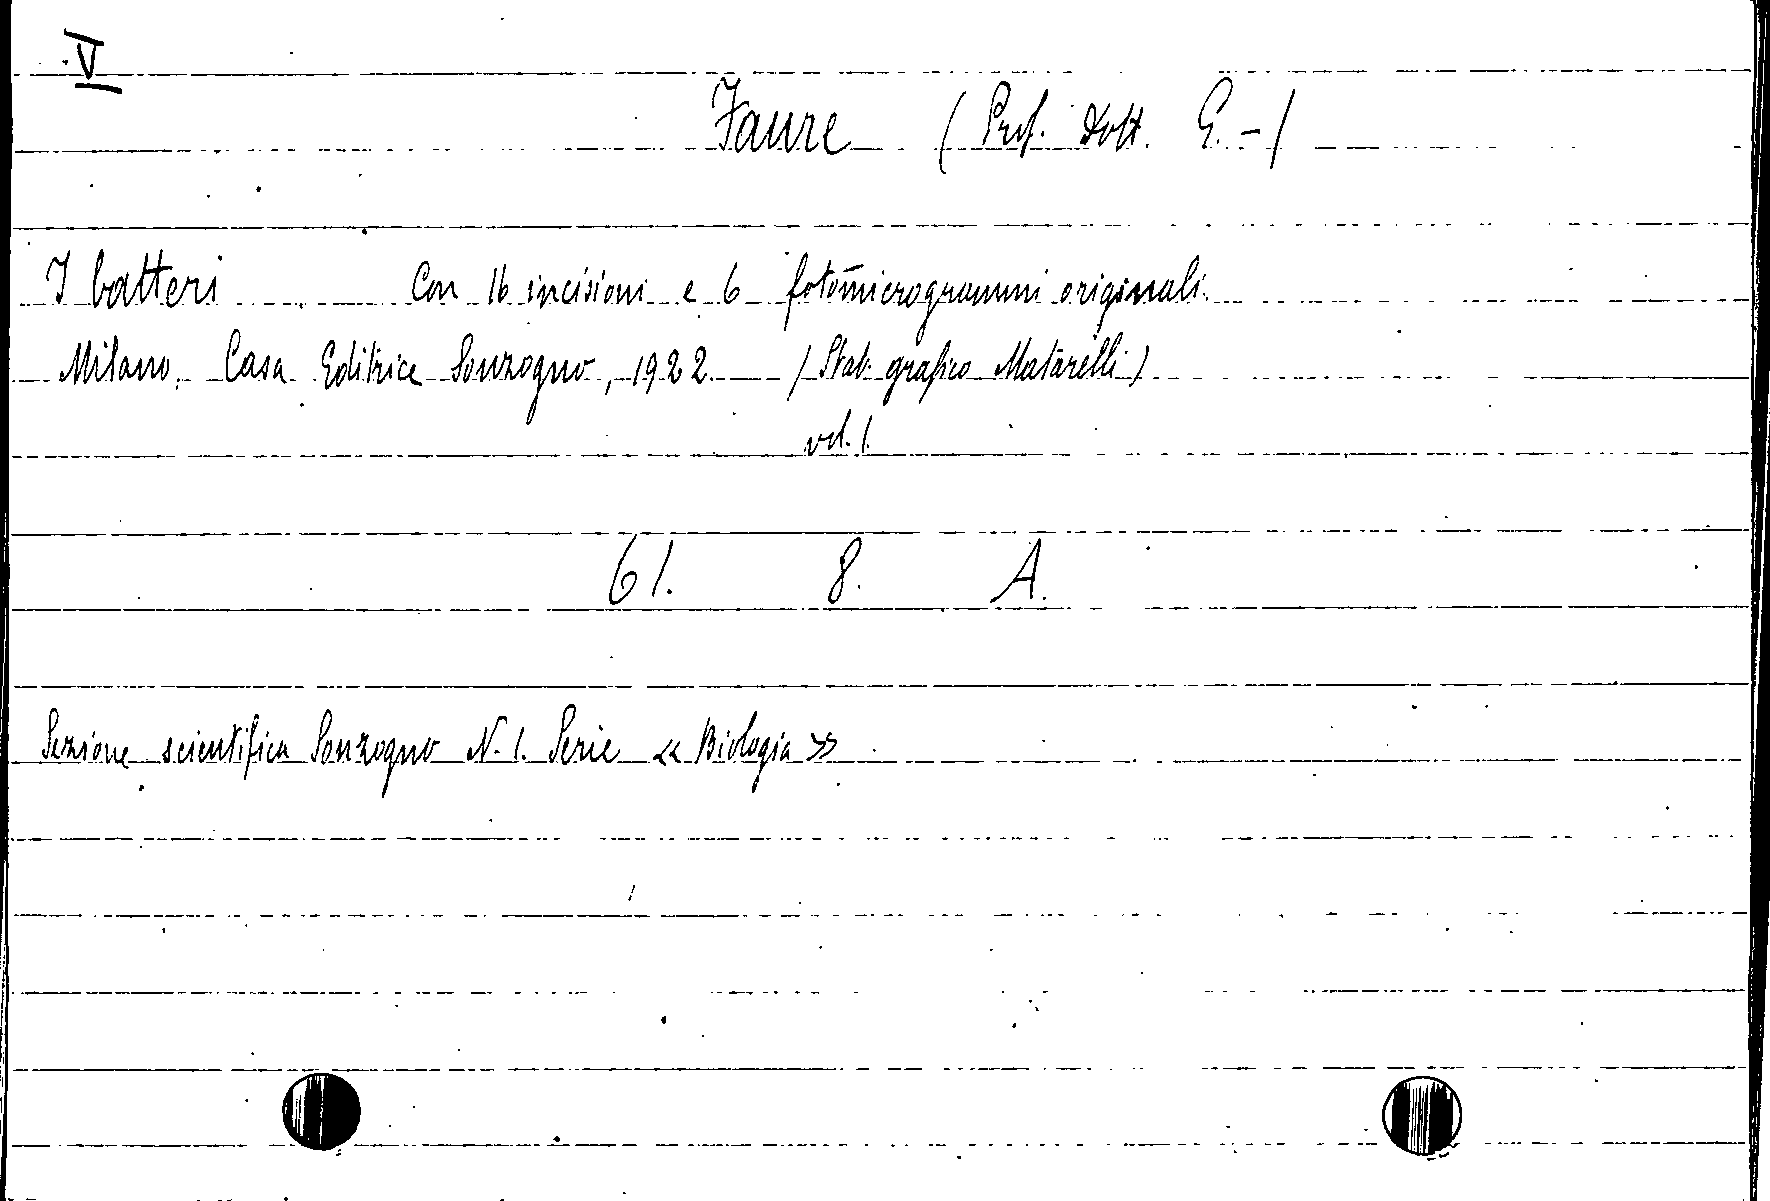 V
Faure (Prof. Dott. G.-)
I batteri Con 16 incisioni e 6 fotomicrogrammi originali.
Milano, Casa Editrice Sonzogno, 1922 (Stab. grafico Matarelli)
vol. 1.
61. 8. A.
Sezione scientifica Sonzogno N. 1. Serie « Biologia »